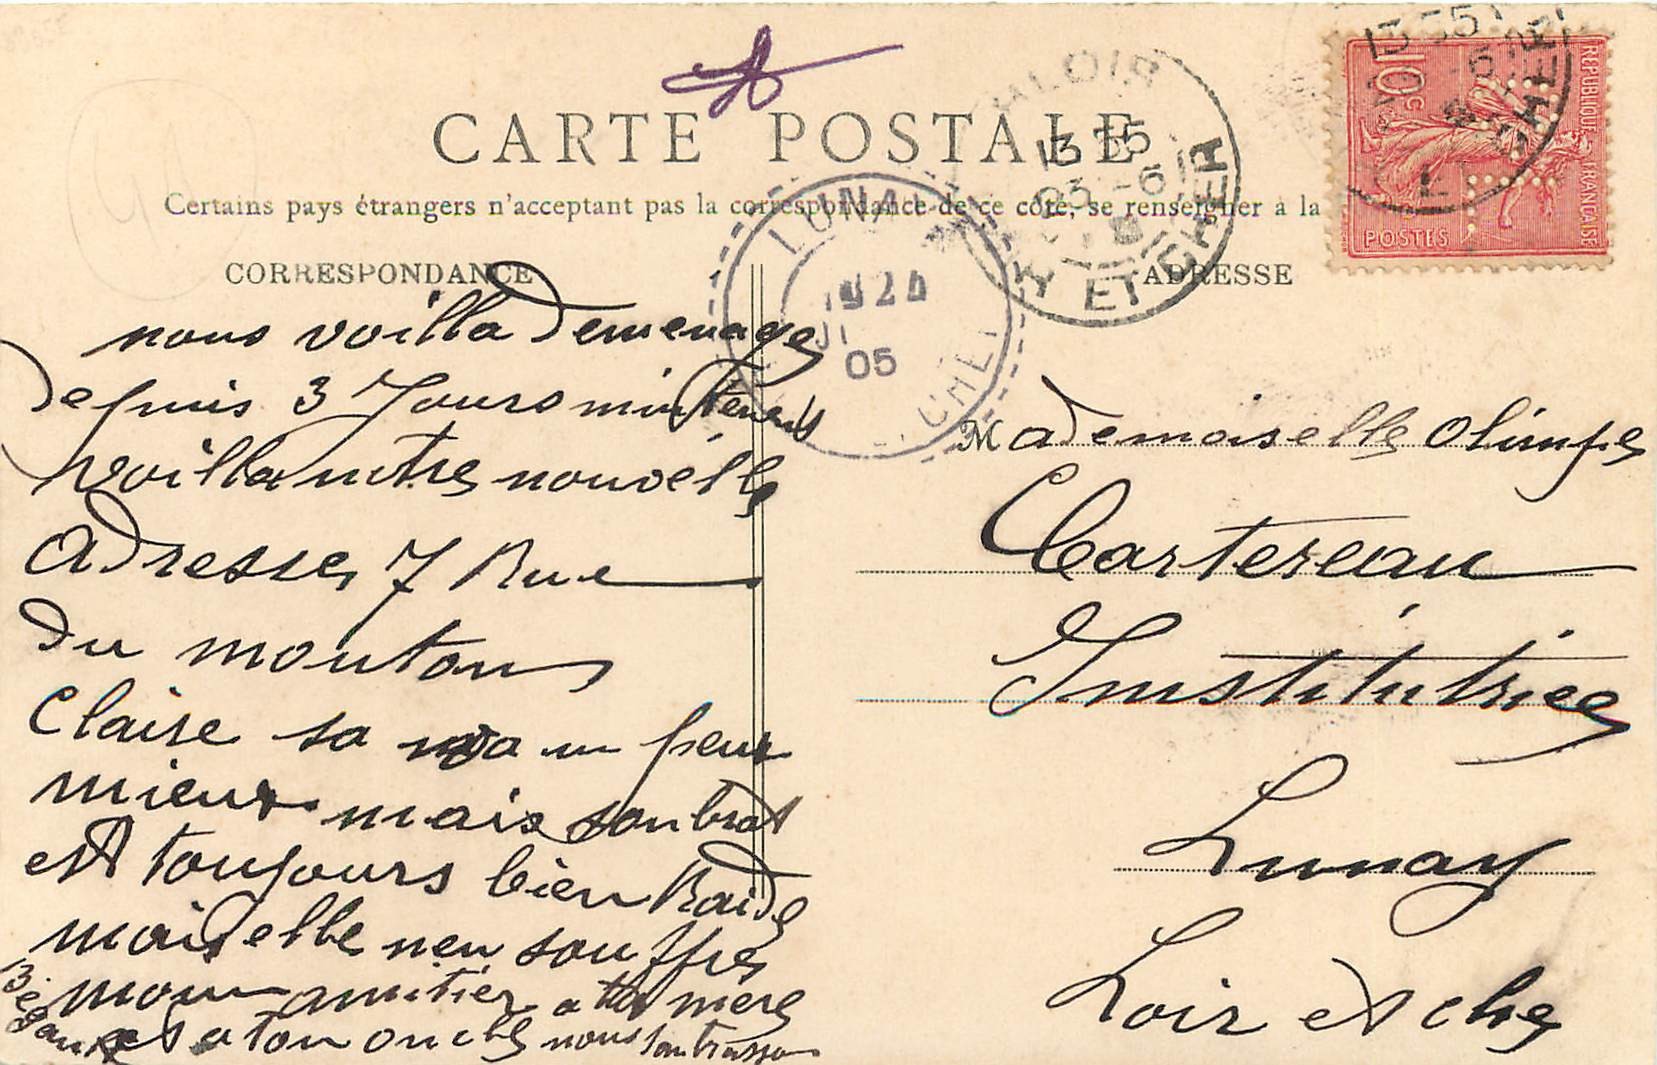 CARTE POSTALE
Certains pays étrangers n'acceptent pas la correspondance de ce côté, se renseigner à la
CORRESPONDANCE
ADRESSE
REPUBLIQUE FRANÇAISE
10c
POSTES
13 35
ET CHER
13 35
23 -6
ET CHER
LUNAY
05
nous voilla demenage
depuis 3 Jours mintenent
voilla notre nouvelle
adresse 7 Rue
du mouton
Claire sa va un peux
mieux mais son brat
est toujours bien Raide
mais elle nen souffre
mon amitier a ta mere
et a ton oncle nous
Mademoiselle Olimpe
Cartereau
Institutrice
Lunay
Loir et che